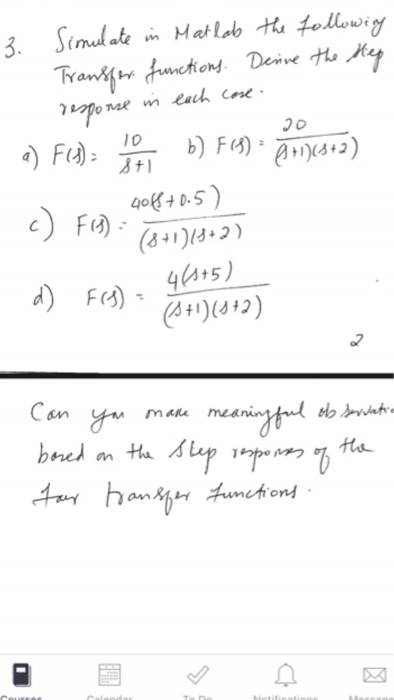 3. Simulate in Matlab the following
Transfer functions. Derive the step
response in each case.
a) F(s) = 10 / s+1 b) F(s) = 20 / (s+1)(s+2)
c) F(s) = 40(s+0.5) / (s+1)(s+2)
d) F(s) = 4(s+5) / (s+1)(s+2)
2
Can you make meaningful observatio
based on the step responses of the
four transfer functions.
Courses Calendar To Do Notifications Messages